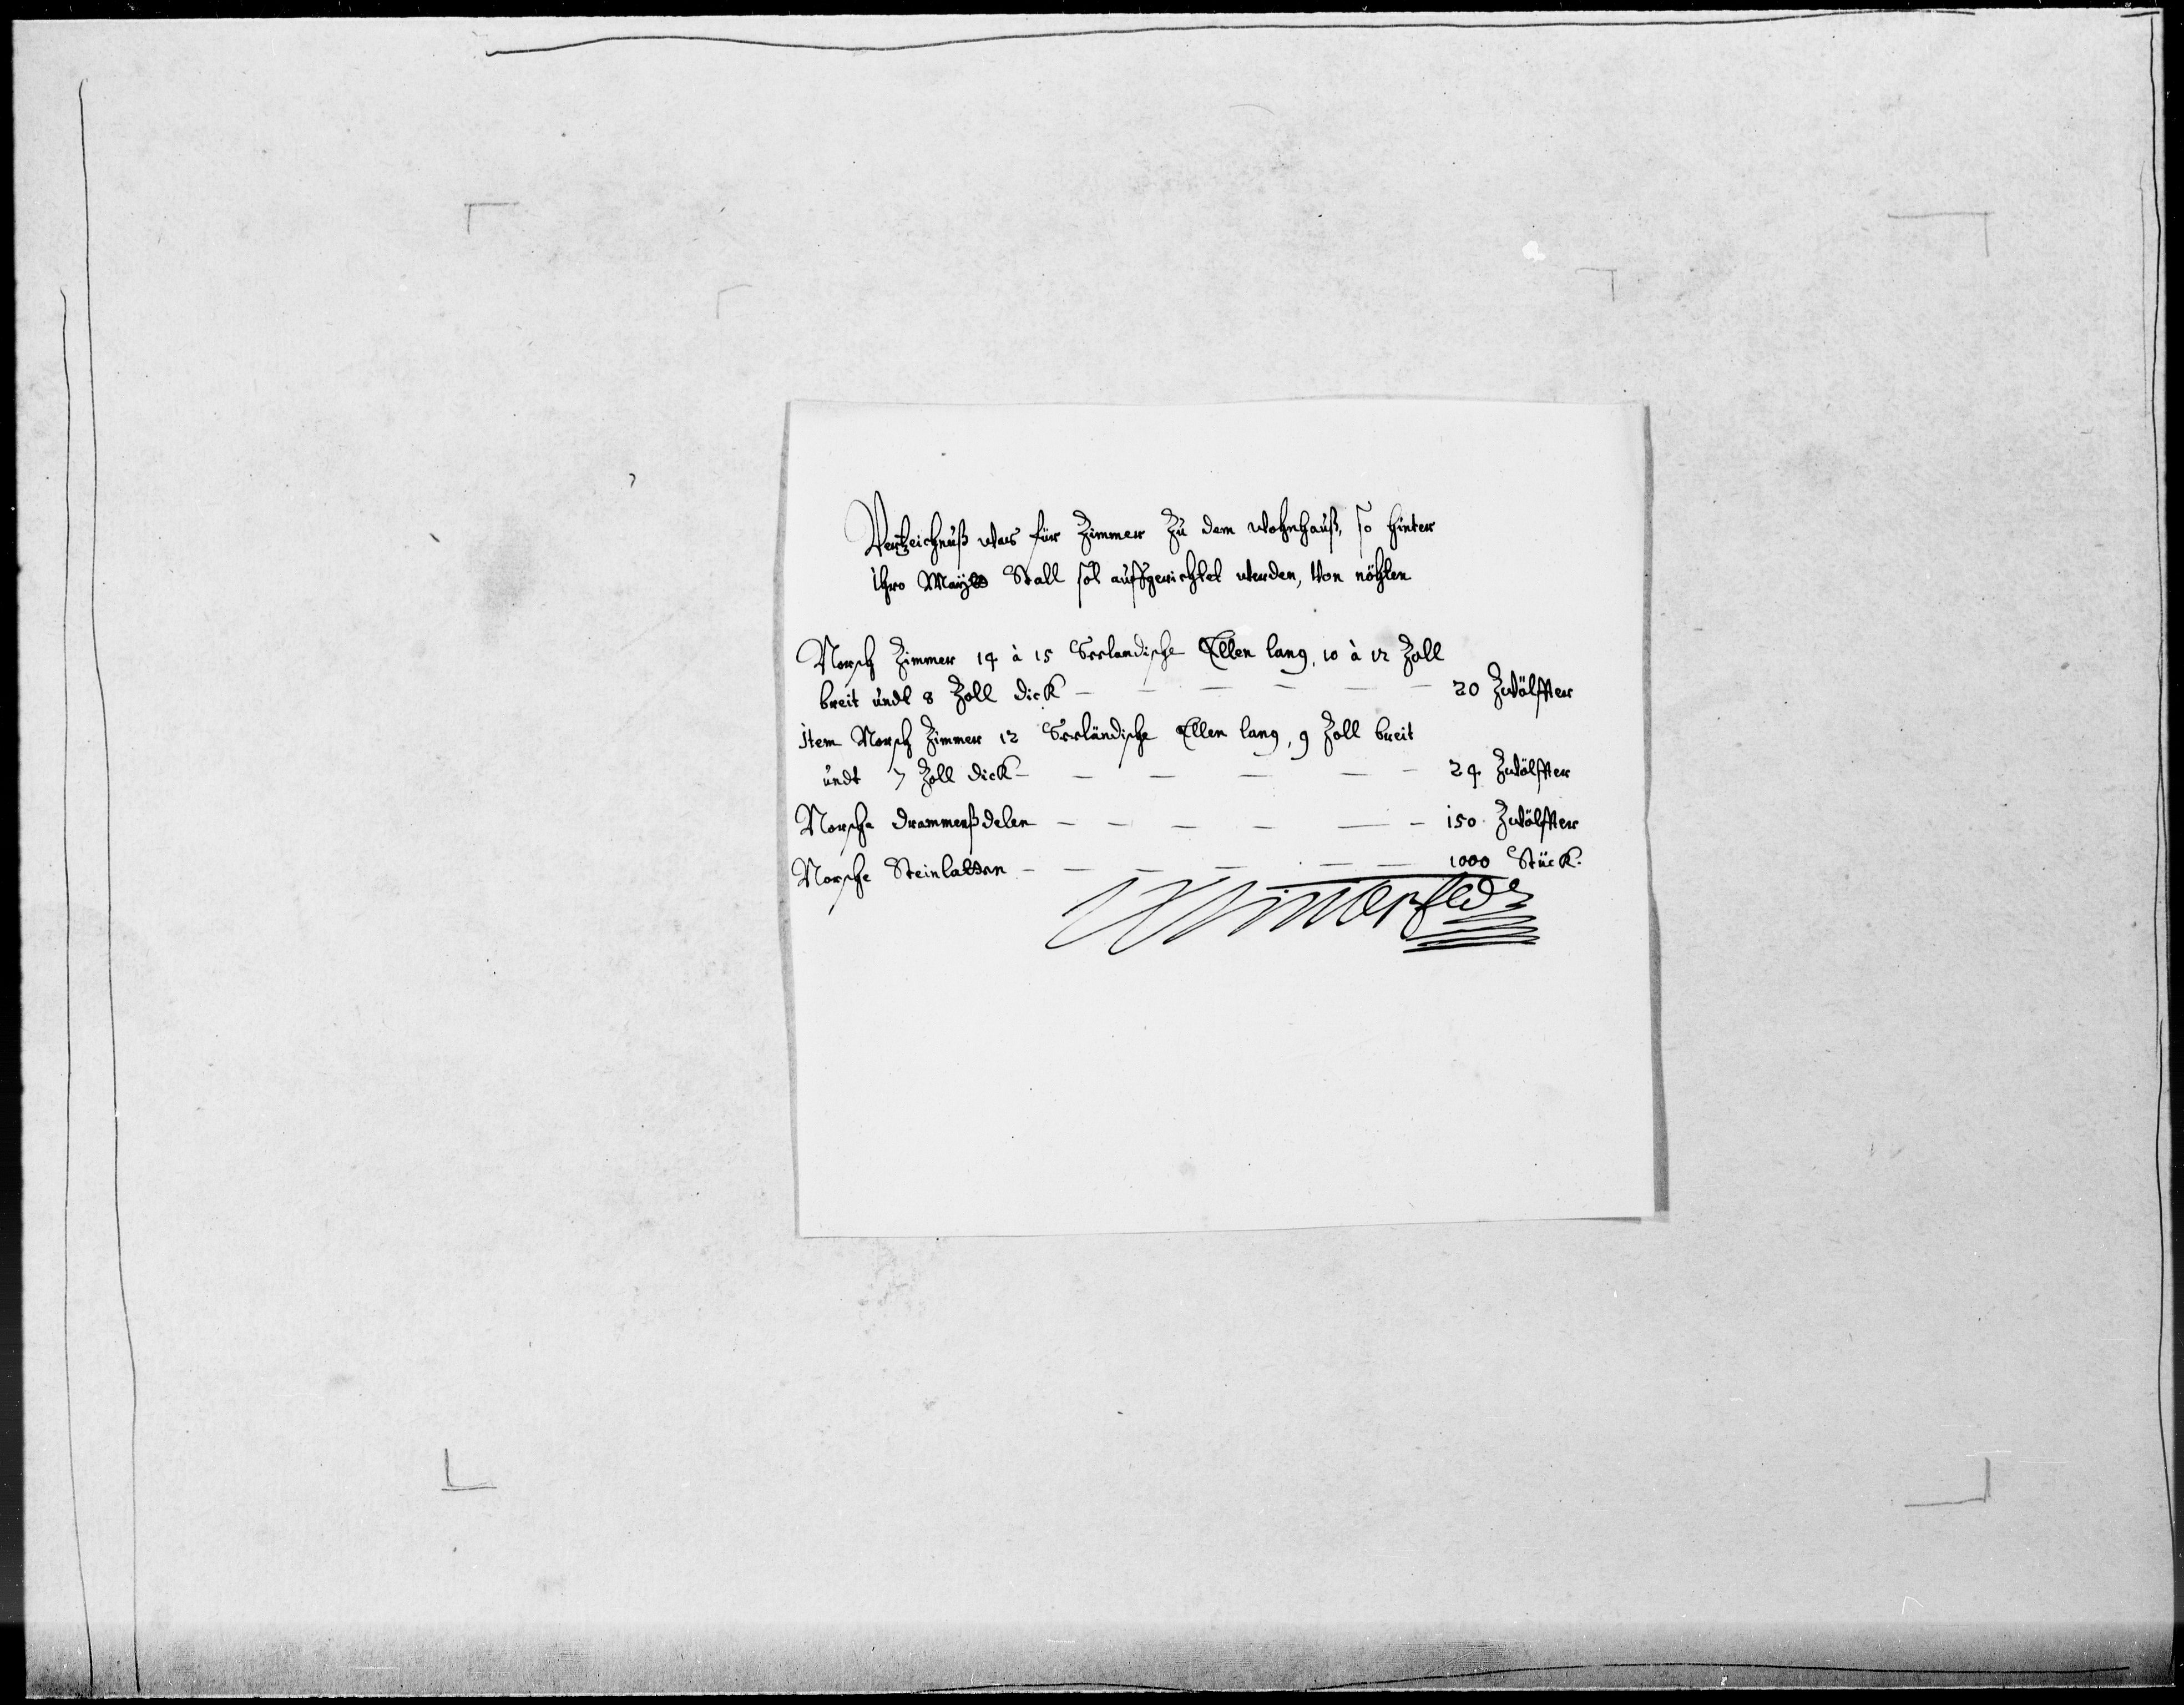 Vertzeichnuß was für Zimmer zu dem Wohnhauß, so hinter
ihro Mayst Stall sol auffgerichtet werden, von nöhten
Norsch Zimmer 14 à 15 Seelandische Ellen lang, 10 à 12 Zoll
breit undt 8 Zoll dick — — — — — — 20 Zwölffter
item Norsch Zimmer 12 Seeländische Ellen lang, 9 Zoll breit
undt 7 Zoll dick — — — — — — 24 Zwölffter
Norsche drammenßdelen — — — — — — 150 Zwölffter
Norsche Steinlatten — — — — — — 1000 Stück.
Winterfeldt